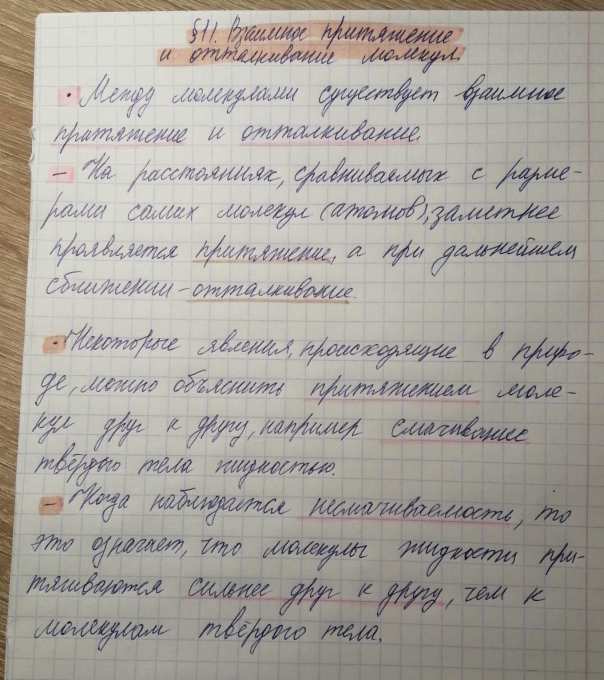 §11. Взаимное притяжение
и отталкивание молекул.
• Между молекулами существует взаимное
притяжение и отталкивание.
– На расстояниях, сравниваемых с разме-
рами самих молекул (атомов), заметнее
проявляется притяжение, а при дальнейшем
сближении – отталкивание.
• Некоторые явления, происходящие в приро-
де, можно объяснить притяжением моле-
кул друг к другу, например смачивание
твёрдого тела жидкостью.
– Когда наблюдается несмачиваемость, то
это означает, что молекулы жидкости при-
тягиваются сильнее друг к другу, чем к
молекулам твёрдого тела.